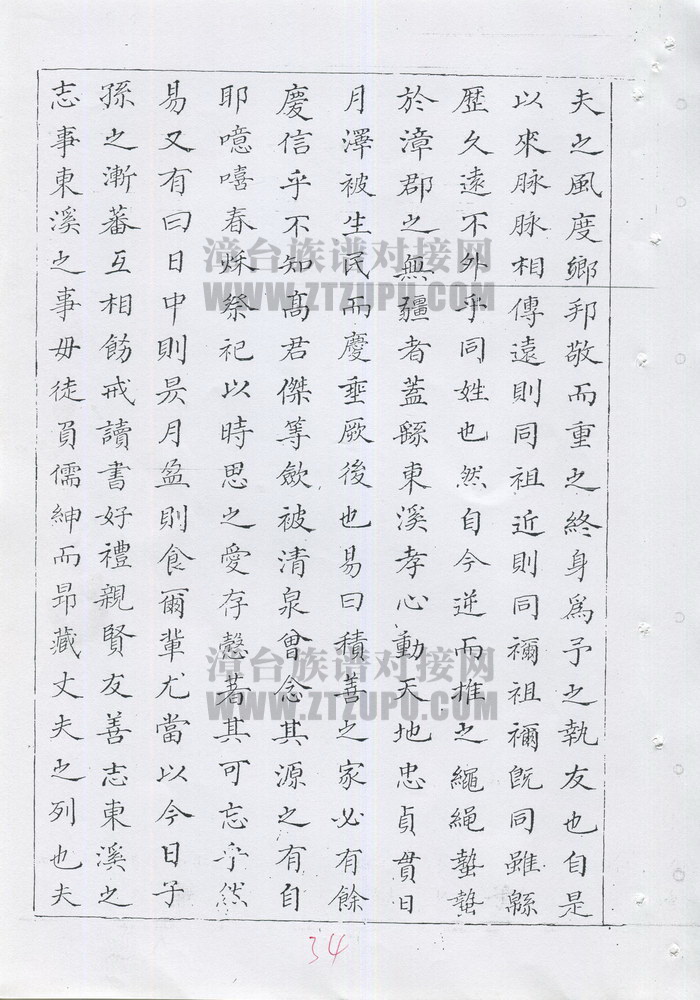 夫之風度鄉邦敬而重之終身爲予之執友也自是
以來脉脉相傳遠則同祖近則同禰祖禰既同雖緜
歷久遠不外乎同姓也然自今逆而推之繩繩蟄蟄
於漳郡之無疆者蓋繇東溪孝心動天地忠貞貫日
月澤被生民而慶垂厥後也易曰積善之家必有餘
慶信乎不知髙君傑等歛被清泉曾念其源之有自
耶噫嘻春秌祭祀以時思之愛存慤著其可忘乎然
易又有曰日中則昃月盈則食爾輩尤當以今日子
孫之漸蕃互相飭戒讀書好禮親賢友善志東溪之
志事東溪之事毋徒負儒紳而昻藏丈夫之列也夫
漳台族谱对接网
WWW.ZTZUPU.COM
漳台族谱对接网
WWW.ZTZUPU.COM
34